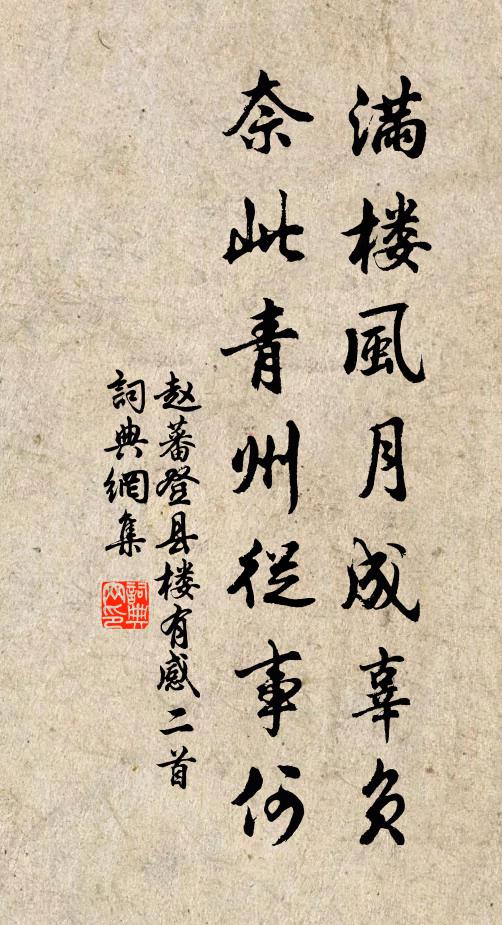 满楼風月成辜负
奈此青州從事何
赵蕃登县楼有感二首
詞典網集
詞典